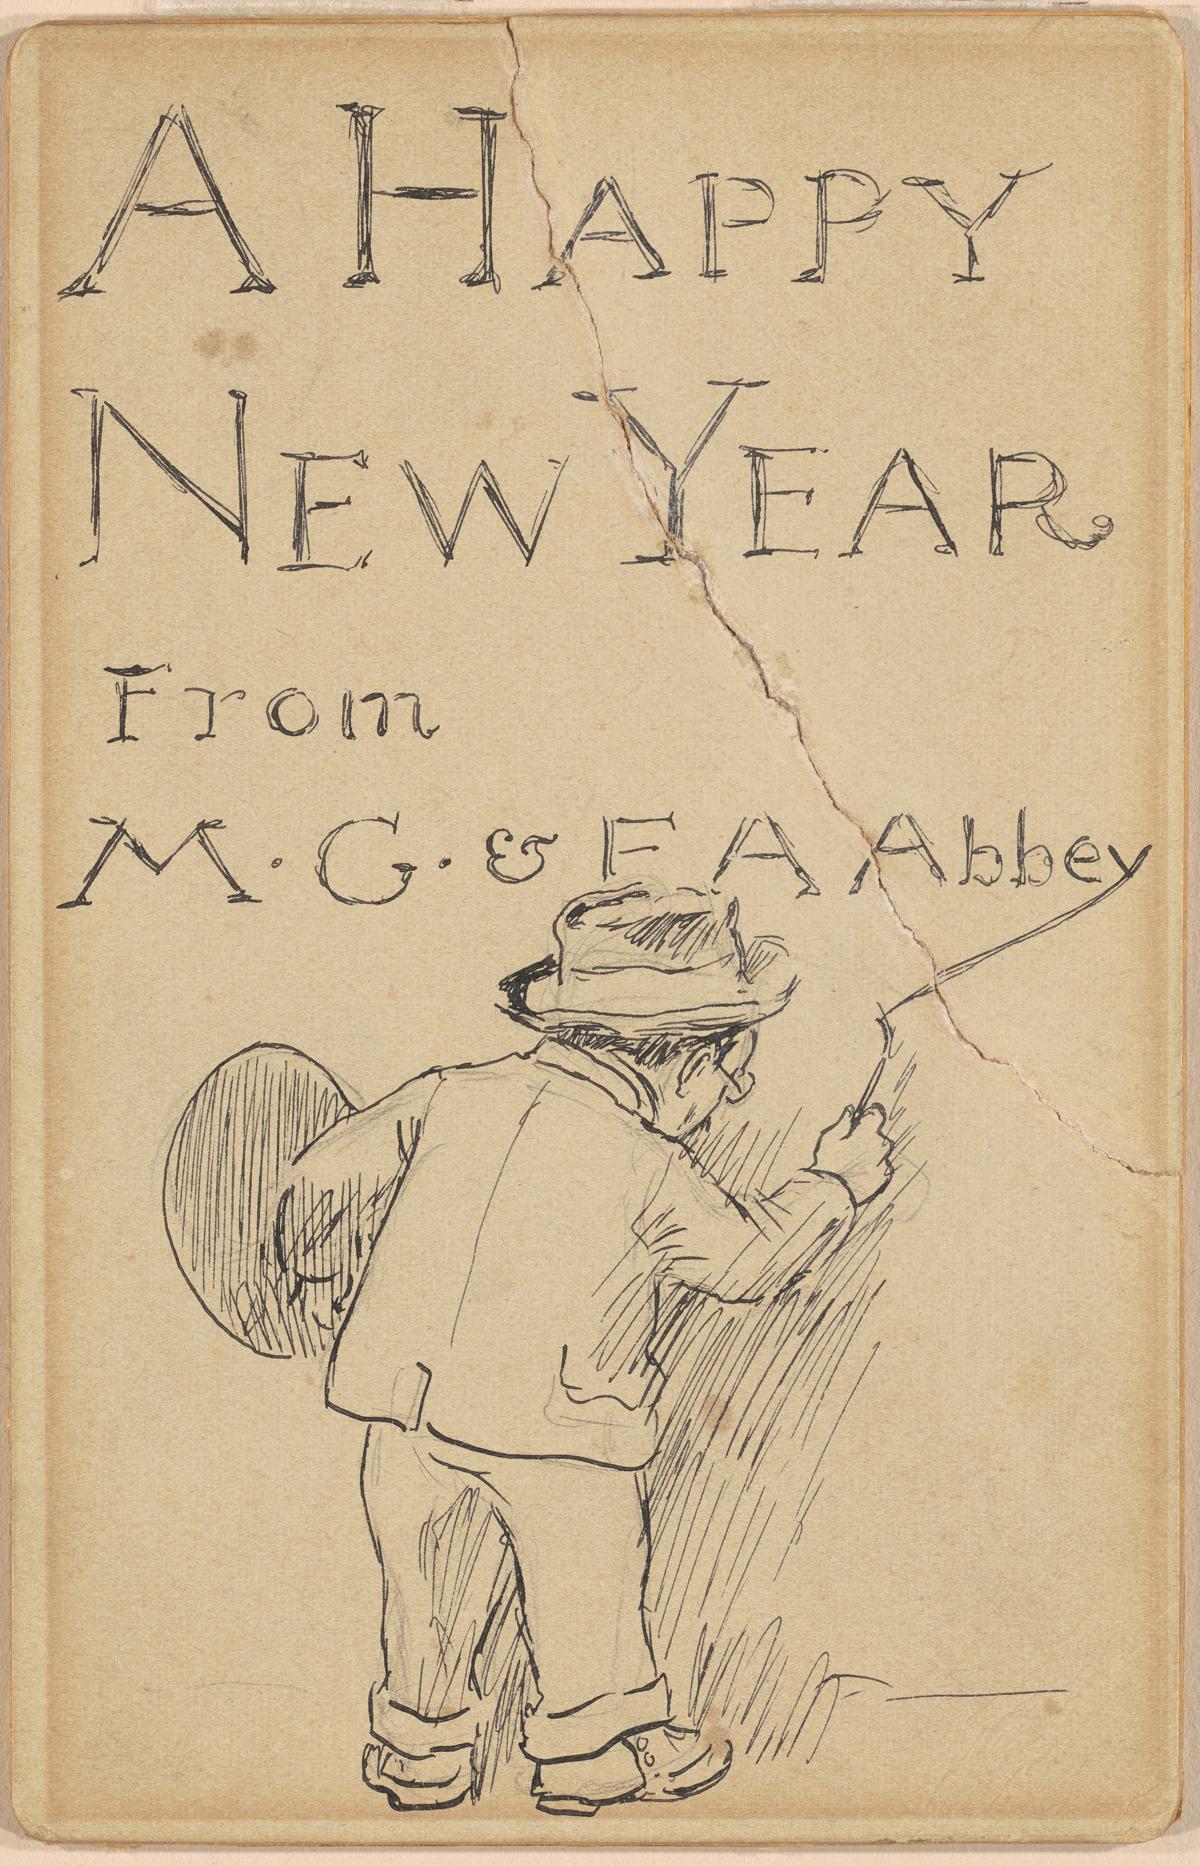 A HAPPY
NEW YEAR
From
M. G. & F A Abbey